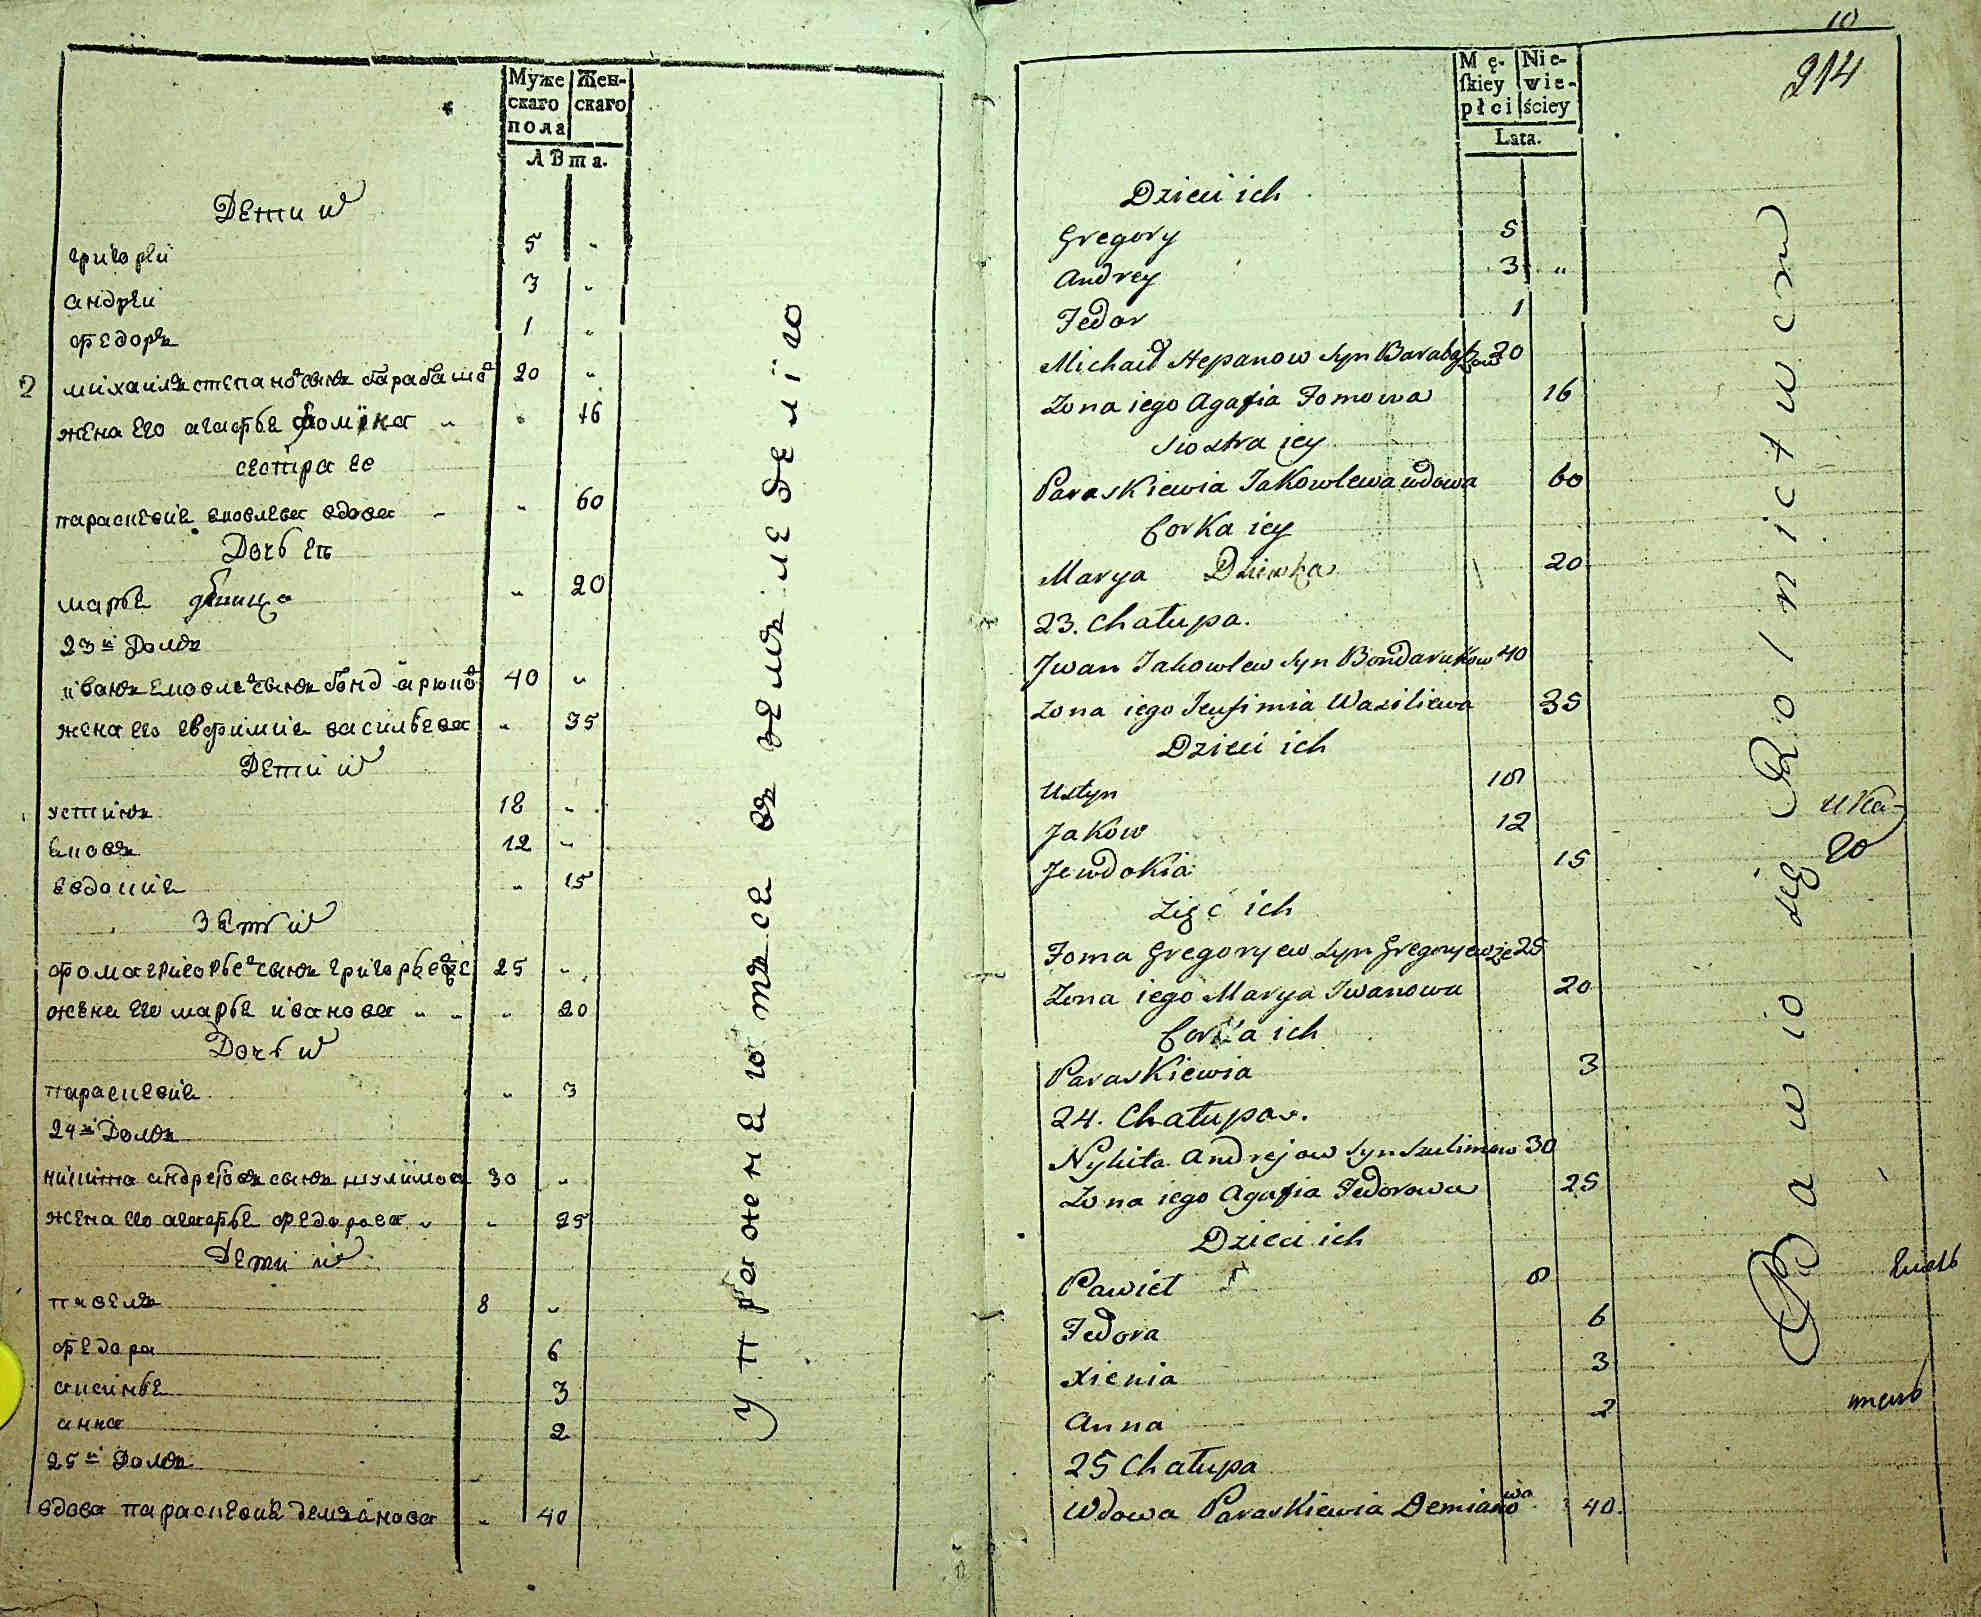 Муже
скаго
пола
Жен-
скаго
лѣта.
Дети их
григореи
5 "
андреи
3 "
федоръ
1 "
2 михаилъ степановъ сынъ барабашов 20 "
жена его агафья фомина " " 16
сестра ее
параскевия яковлева вдова " " 60
Дочь ея
марья девица " 20
23й Домъ
иванъ яковлев сынъ бондарюков 40 "
жена его евфимия васильева " 35
Дети их
устинъ 18 "
яковъ 12 "
евдокия " 15
Зять их
фома григорьев сынъ григорьев 25 "
жена его марья иванова " " " 20
Дочь их
параскевия " 3
24й Домъ
никита андреевъ сынъ шулимов 30 "
жена его агафья федорова " " 25
Дети их
павелъ 8 "
федора 6
аксинья 3
анна 2
25й Домъ
вдова параскевия демянова " 40
упражняются въ земледелiю
10
214
Mę-
skiey
płci
Nie-
wie-
ściey
Lata.
Dzieci ich
Gregory 5
Andrey 3 "
Fedor 1
Michaił Stepanow syn Barabaszow 20
Zona iego Agafia Fomowa 16
Siostra iey
Paraskiewia Jakowlewa wdowa 60
Corka iey
Marya Dziewka 20
23. Chałupa.
Jwan Jakowlew syn Bondarukow 40
Zona iego Jeufimia Wasiliewa 35
Dzieci ich
Ustyn 18
Jakow 12
Jewdokia 15
Zięć ich
Foma Gregoryew syn Gregoryewże 25
Zona iego Marya Jwanowa 20
Corka ich
Paraskiewia 3
24. Chałupa.
Nykita Andrejow syn Szulimow 30
Zona iego Agafia Fedorowa 25
Dzieci ich
Pawieł 8
Fedora 6
Xienia 3
Anna 2
25 Chałupa
Wdowa Paraskiewia Demianowa 40.
Bawio się Rolnictwem